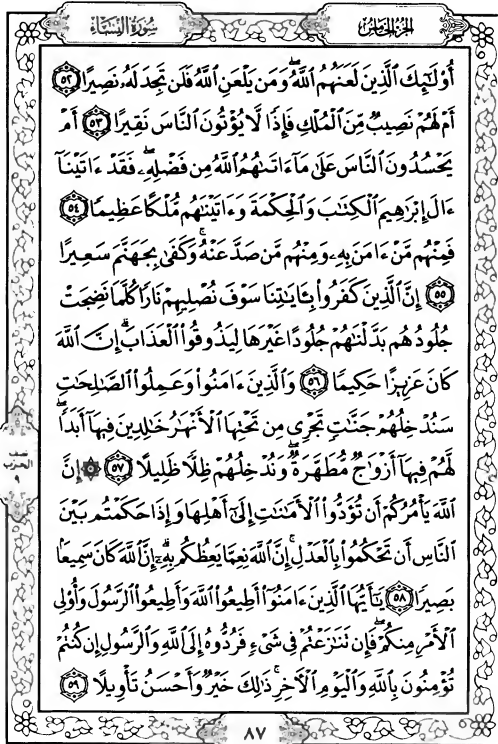 الجزء الخامس
سورة النساء
أُوْلَٰٓئِكَ ٱلَّذِينَ لَعَنَهُمُ ٱللَّهُ ۖ وَمَن يَلْعَنِ ٱللَّهُ فَلَن تَجِدَ لَهُۥ نَصِيرًا ٥٢
أَمْ لَهُمْ نَصِيبٌ مِّنَ ٱلْمُلْكِ فَإِذًا لَّا يُؤْتُونَ ٱلنَّاسَ نَقِيرًا ٥٣ أَمْ
يَحْسُدُونَ ٱلنَّاسَ عَلَىٰ مَآ ءَاتَىٰهُمُ ٱللَّهُ مِن فَضْلِهِۦ ۖ فَقَدْ ءَاتَيْنَآ
ءَالَ إِبْرَٰهِيمَ ٱلْكِتَٰبَ وَٱلْحِكْمَةَ وَءَاتَيْنَٰهُم مُّلْكًا عَظِيمًا ٥٤
فَمِنْهُم مَّنْ ءَامَنَ بِهِۦ وَمِنْهُم مَّن صَدَّ عَنْهُ ۚ وَكَفَىٰ بِجَهَنَّمَ سَعِيرًا
٥٥ إِنَّ ٱلَّذِينَ كَفَرُوا۟ بِـَٔايَٰتِنَا سَوْفَ نُصْلِيهِمْ نَارًا كُلَّمَا نَضِجَتْ
جُلُودُهُم بَدَّلْنَٰهُمْ جُلُودًا غَيْرَهَا لِيَذُوقُوا۟ ٱلْعَذَابَ ۗ إِنَّ ٱللَّهَ
كَانَ عَزِيزًا حَكِيمًا ٥٦ وَٱلَّذِينَ ءَامَنُوا۟ وَعَمِلُوا۟ ٱلصَّٰلِحَٰتِ
سَنُدْخِلُهُمْ جَنَّٰتٍ تَجْرِى مِن تَحْتِهَا ٱلْأَنْهَٰرُ خَٰلِدِينَ فِيهَآ أَبَدًا ۖ
لَّهُمْ فِيهَآ أَزْوَٰجٌ مُّطَهَّرَةٌ ۖ وَنُدْخِلُهُمْ ظِلًّا ظَلِيلًا ٥٧ ۞ إِنَّ
ٱللَّهَ يَأْمُرُكُمْ أَن تُؤَدُّوا۟ ٱلْأَمَٰنَٰتِ إِلَىٰٓ أَهْلِهَا وَإِذَا حَكَمْتُم بَيْنَ
ٱلنَّاسِ أَن تَحْكُمُوا۟ بِٱلْعَدْلِ ۚ إِنَّ ٱللَّهَ نِعِمَّا يَعِظُكُم بِهِۦٓ ۗ إِنَّ ٱللَّهَ كَانَ سَمِيعًۢا
بَصِيرًا ٥٨ يَٰٓأَيُّهَا ٱلَّذِينَ ءَامَنُوٓا۟ أَطِيعُوا۟ ٱللَّهَ وَأَطِيعُوا۟ ٱلرَّسُولَ وَأُو۟لِى
ٱلْأَمْرِ مِنكُمْ ۖ فَإِن تَنَٰزَعْتُمْ فِى شَىْءٍ فَرُدُّوهُ إِلَى ٱللَّهِ وَٱلرَّسُولِ إِن كُنتُمْ
تُؤْمِنُونَ بِٱللَّهِ وَٱلْيَوْمِ ٱلْءَاخِرِ ۚ ذَٰلِكَ خَيْرٌ وَأَحْسَنُ تَأْوِيلًا ٥٩
الحزب
٩
٨٧